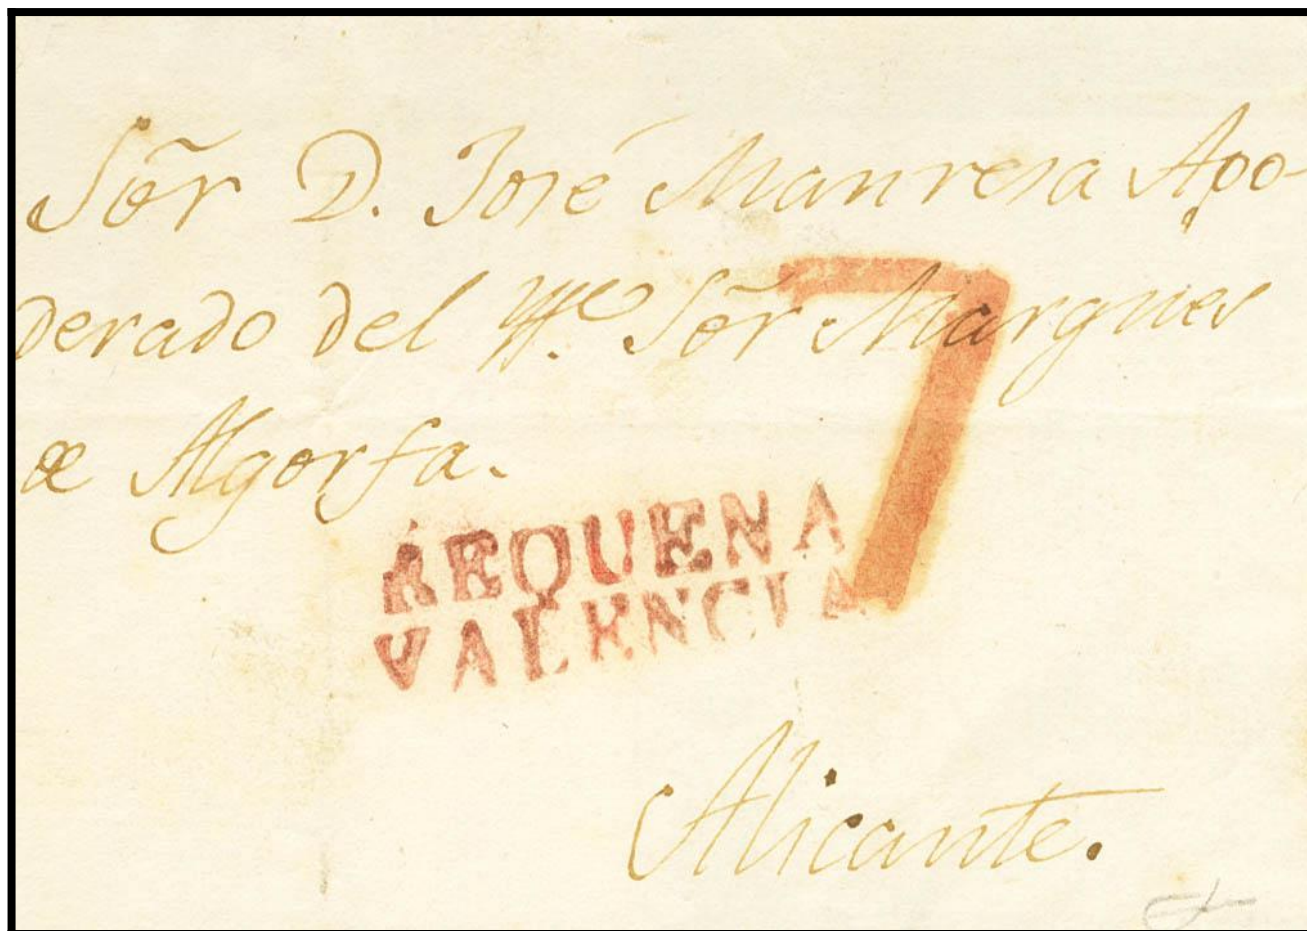 Sor̃ D. José Manresa Apo-
derado del Sor̃ Marques
de Algorfa.
7
REQUENA
VALENCIA
Alicante.